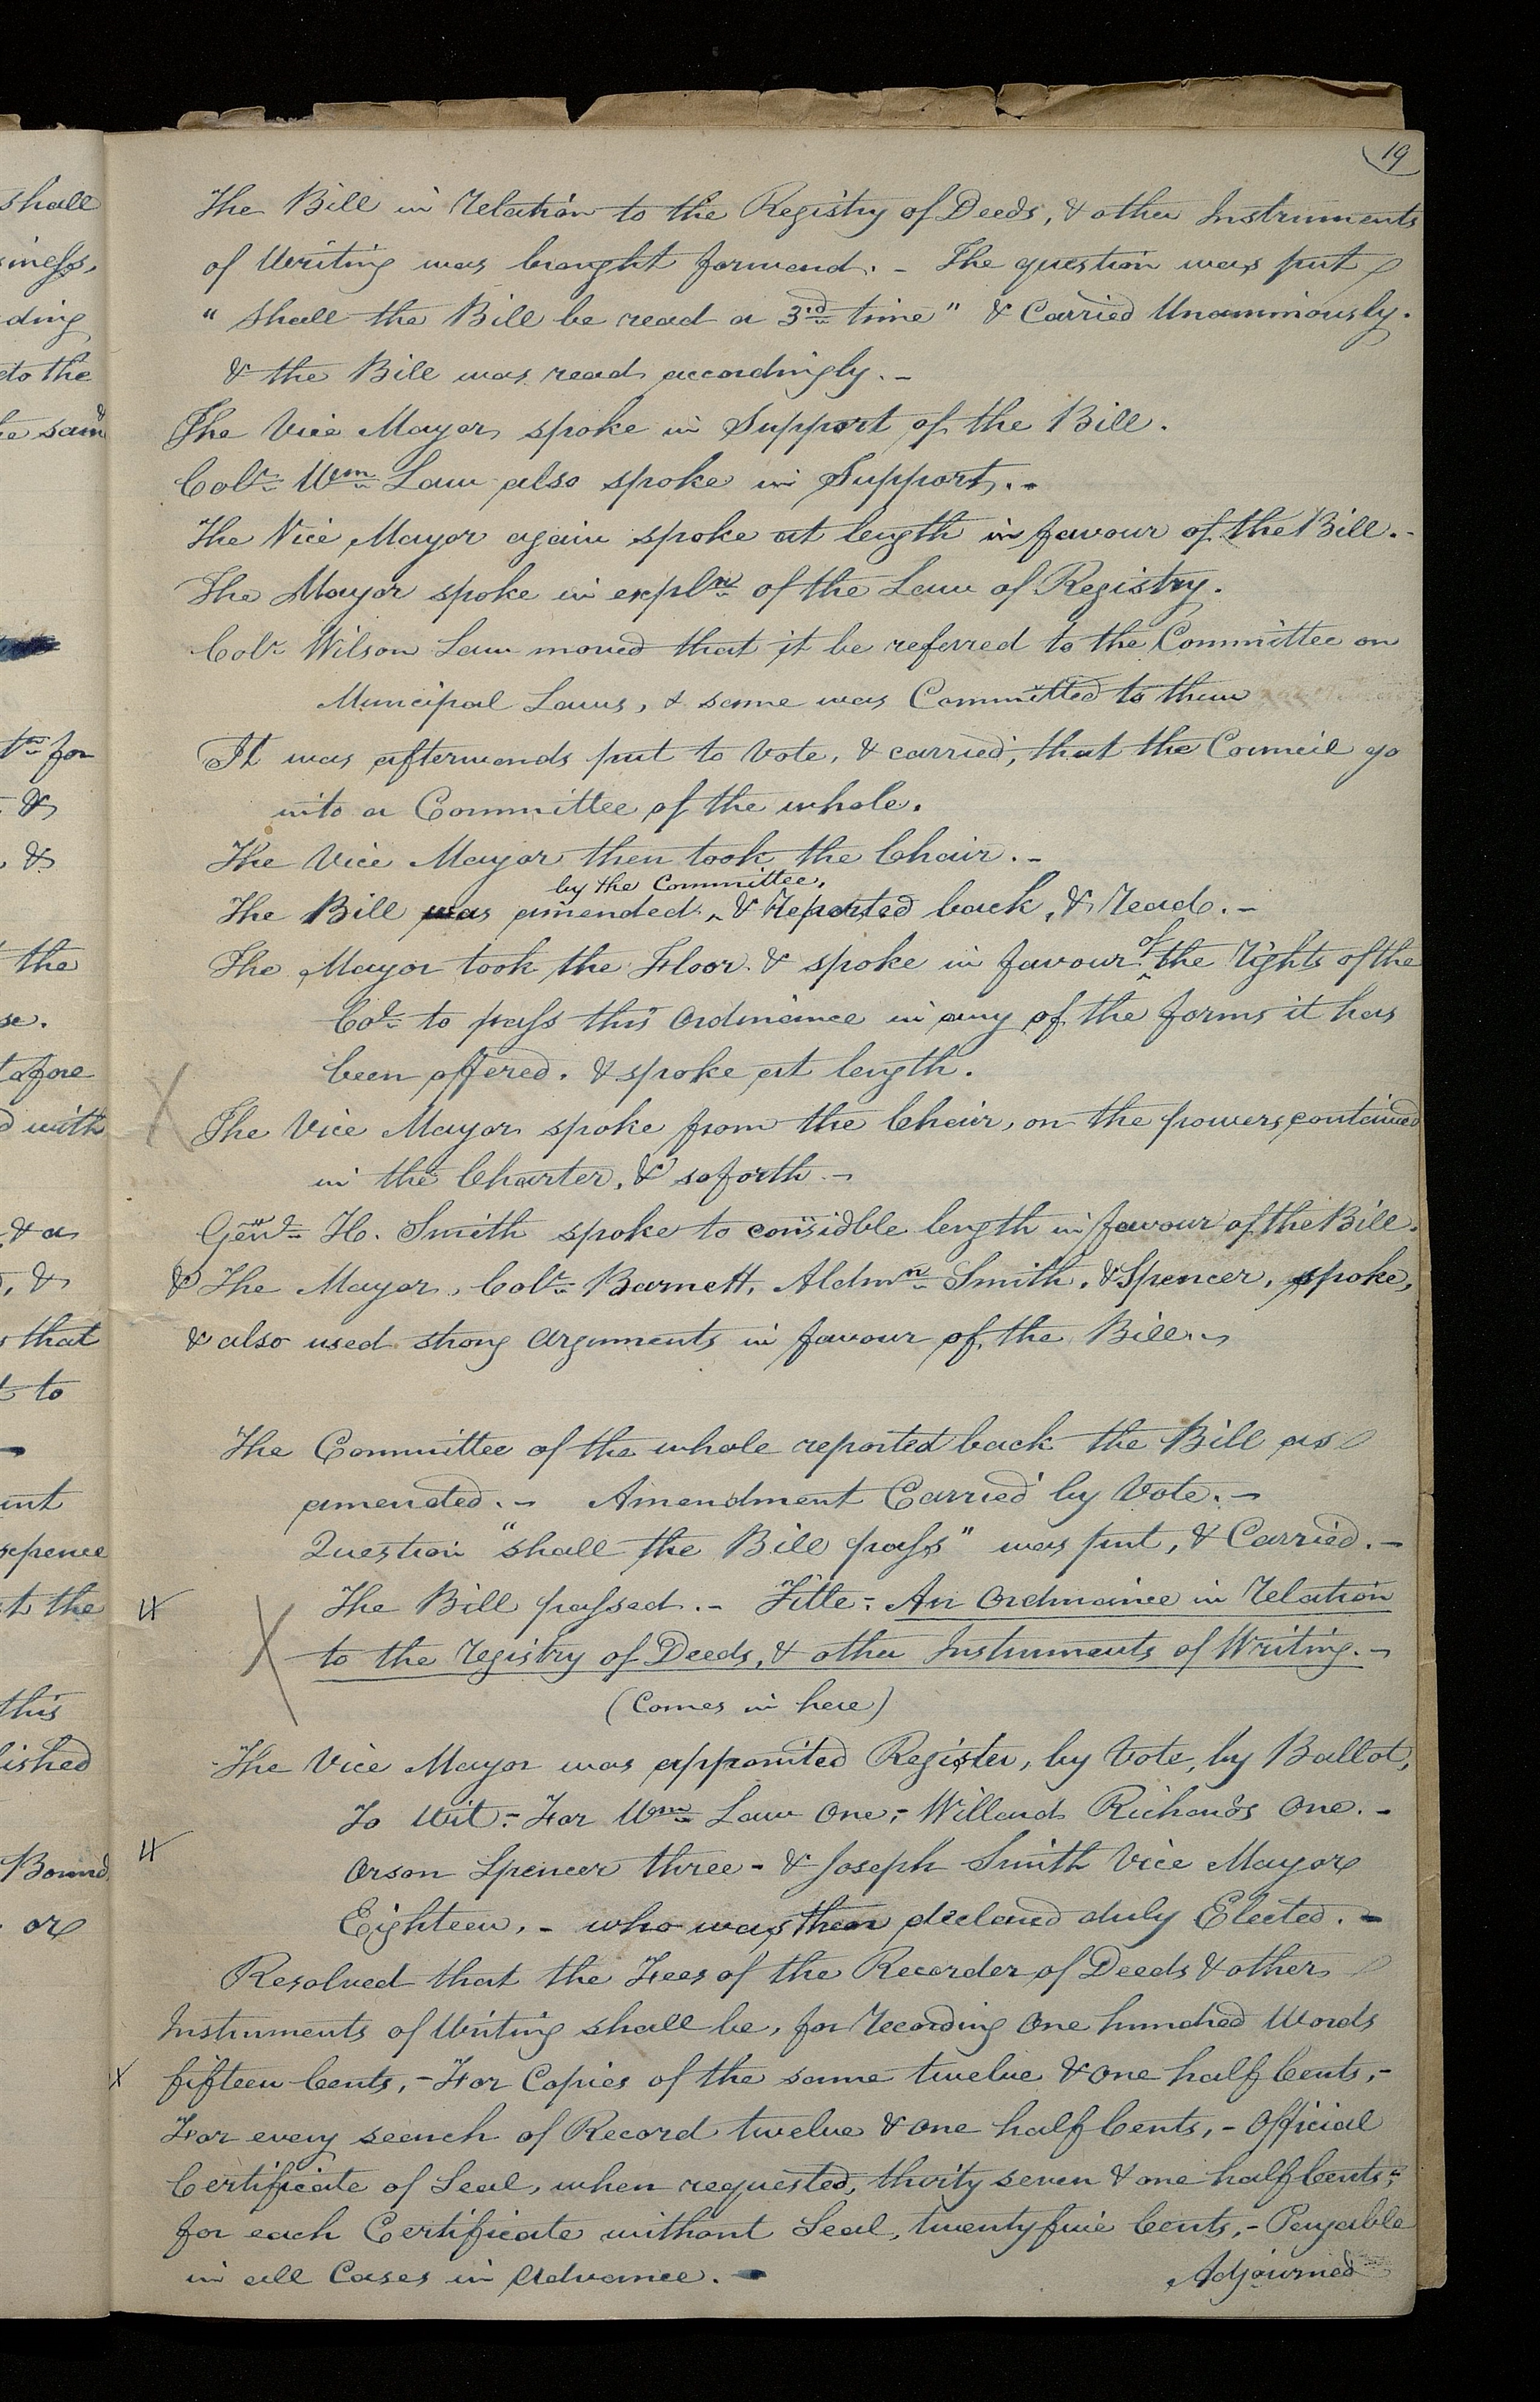 19
The Bill in Relation to the Registry of Deeds, & other Instruments
of Writing was brought forward. - The question was put
"shall the Bill be read a 3rd time" & Carried Unanimously.
& the Bill was read accordingly. -
The Vice Mayor spoke in Support of the Bill.
Colr. Wm Law also spoke in Support. -
The Vice Mayor again spoke at length in favour of the Bill. -
The Mayor spoke in expln of the Law of Registry.
Colr. Wilson Law moved that it be referred to the Committee on
Municipal Laws, & same was Committed to them
It was afterwards put to Vote, & carried, that the Council go
into a Committee of the whole.
The Vice Mayor then took the Chair. -
by the Committee,
The Bill was amended ^ & Reported back, & Read. -
The Mayor took the Floor & spoke in favour ^of the Rights of the
Col. to pass this Ordinance in any of the forms it has
been offered. & spoke at length.
The Vice Mayor spoke from the Chair, on the powers contained
in the Charter, & so forth. -
Genl. H. Smith spoke to considble length in favour of the Bill.
& The Mayor, Colr. Barnett, Aldmn Smith, & Spencer, spoke,
& also used strong Arguments in favour of the Bill. -
The Committee of the whole reported back the Bill as
amended. - Amendment Carried by Vote. -
Question "shall the Bill pass" was put, & Carried. -
The Bill passed. - Title: An Ordinance in Relation
to the Registry of Deeds, & other Instruments of Writing. -
(Comes in here)
The Vice Mayor was appointed Register, by Vote, by Ballot,
To Wit: - For Wm Law One, - Willard Richards One. -
Orson Spencer three - & Joseph Smith Vice Mayor
Eighteen, - who was then declared duly Elected. -
Resolved that the Fees of the Recorder of Deeds & other
Instruments of Writing shall be, for Recording One hundred Words
fifteen Cents, - For Copies of the same twelve & One half Cents, -
For every search of Record twelve & One half Cents, - Official
Certificate of Seal, when requested, thirty seven & one half Cents, -
for each Certificate without Seal, twenty five Cents, - Payable
in all Cases in Advance. -
Adjourned
shall
siness,
ding
to the
he same
for
&
& 
the
se.
tofore
d with
& a
&
that
to
sepence
t the
this
lished
Bound
or